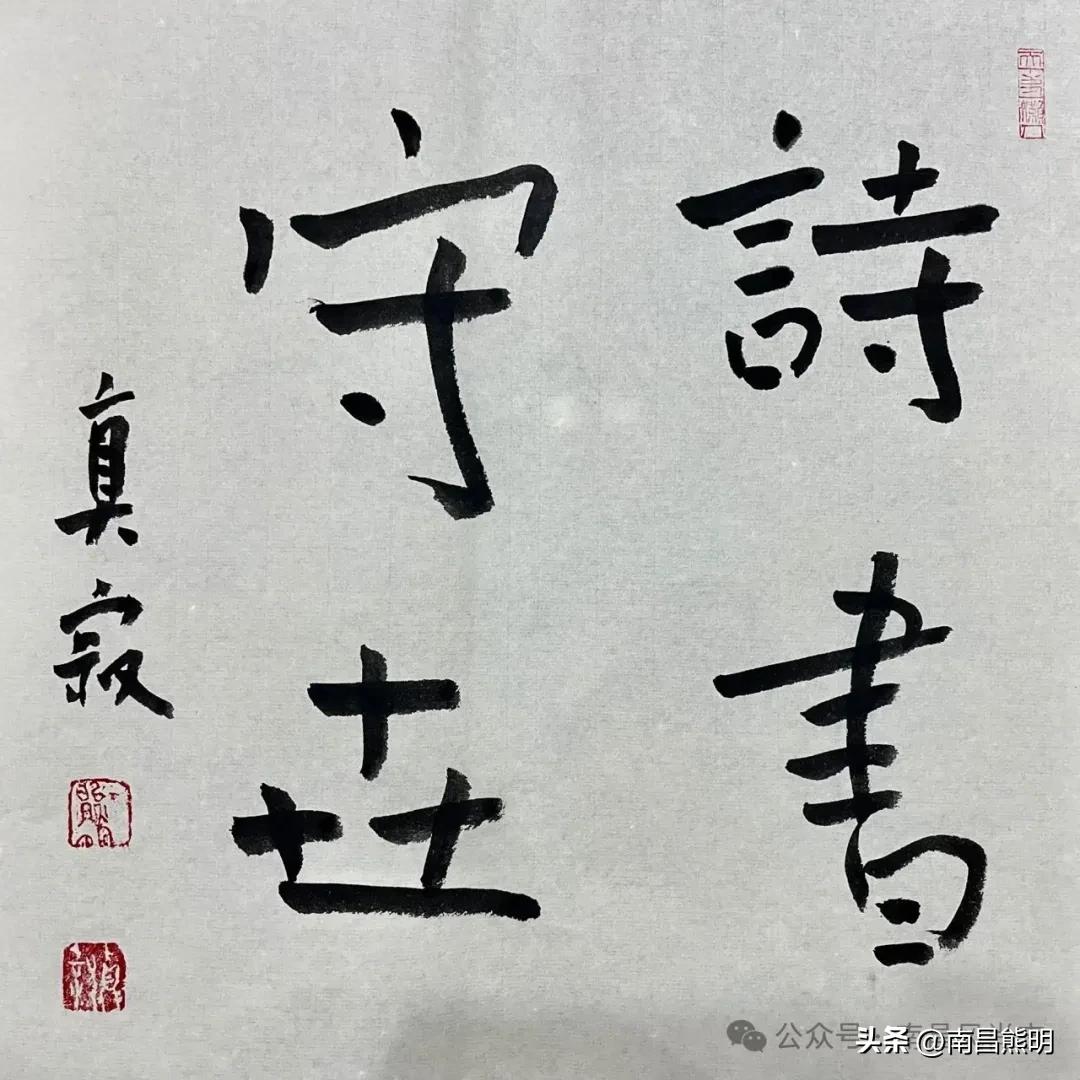 詩書
守𠀍
真寂
公众号
头条 @南昌熊明